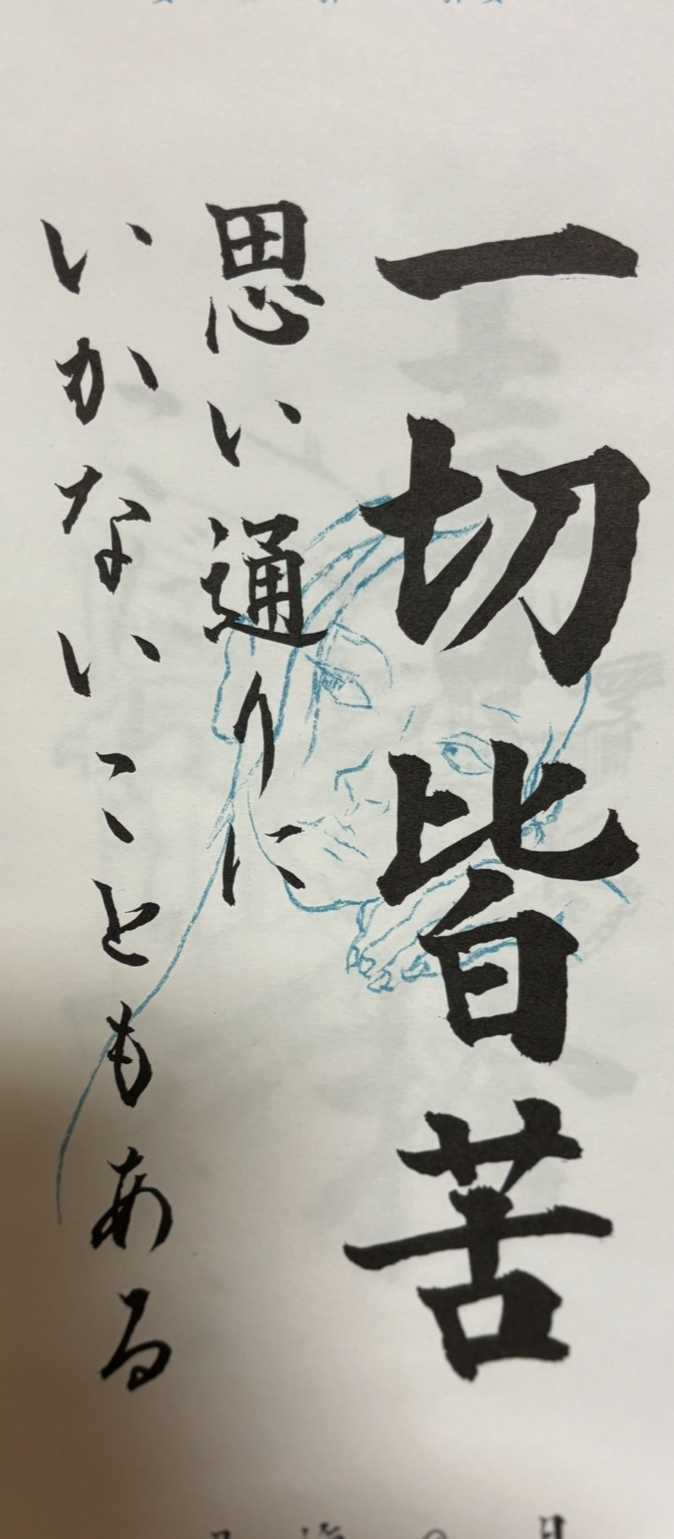 一切皆苦
思い通りに
いかないこともある